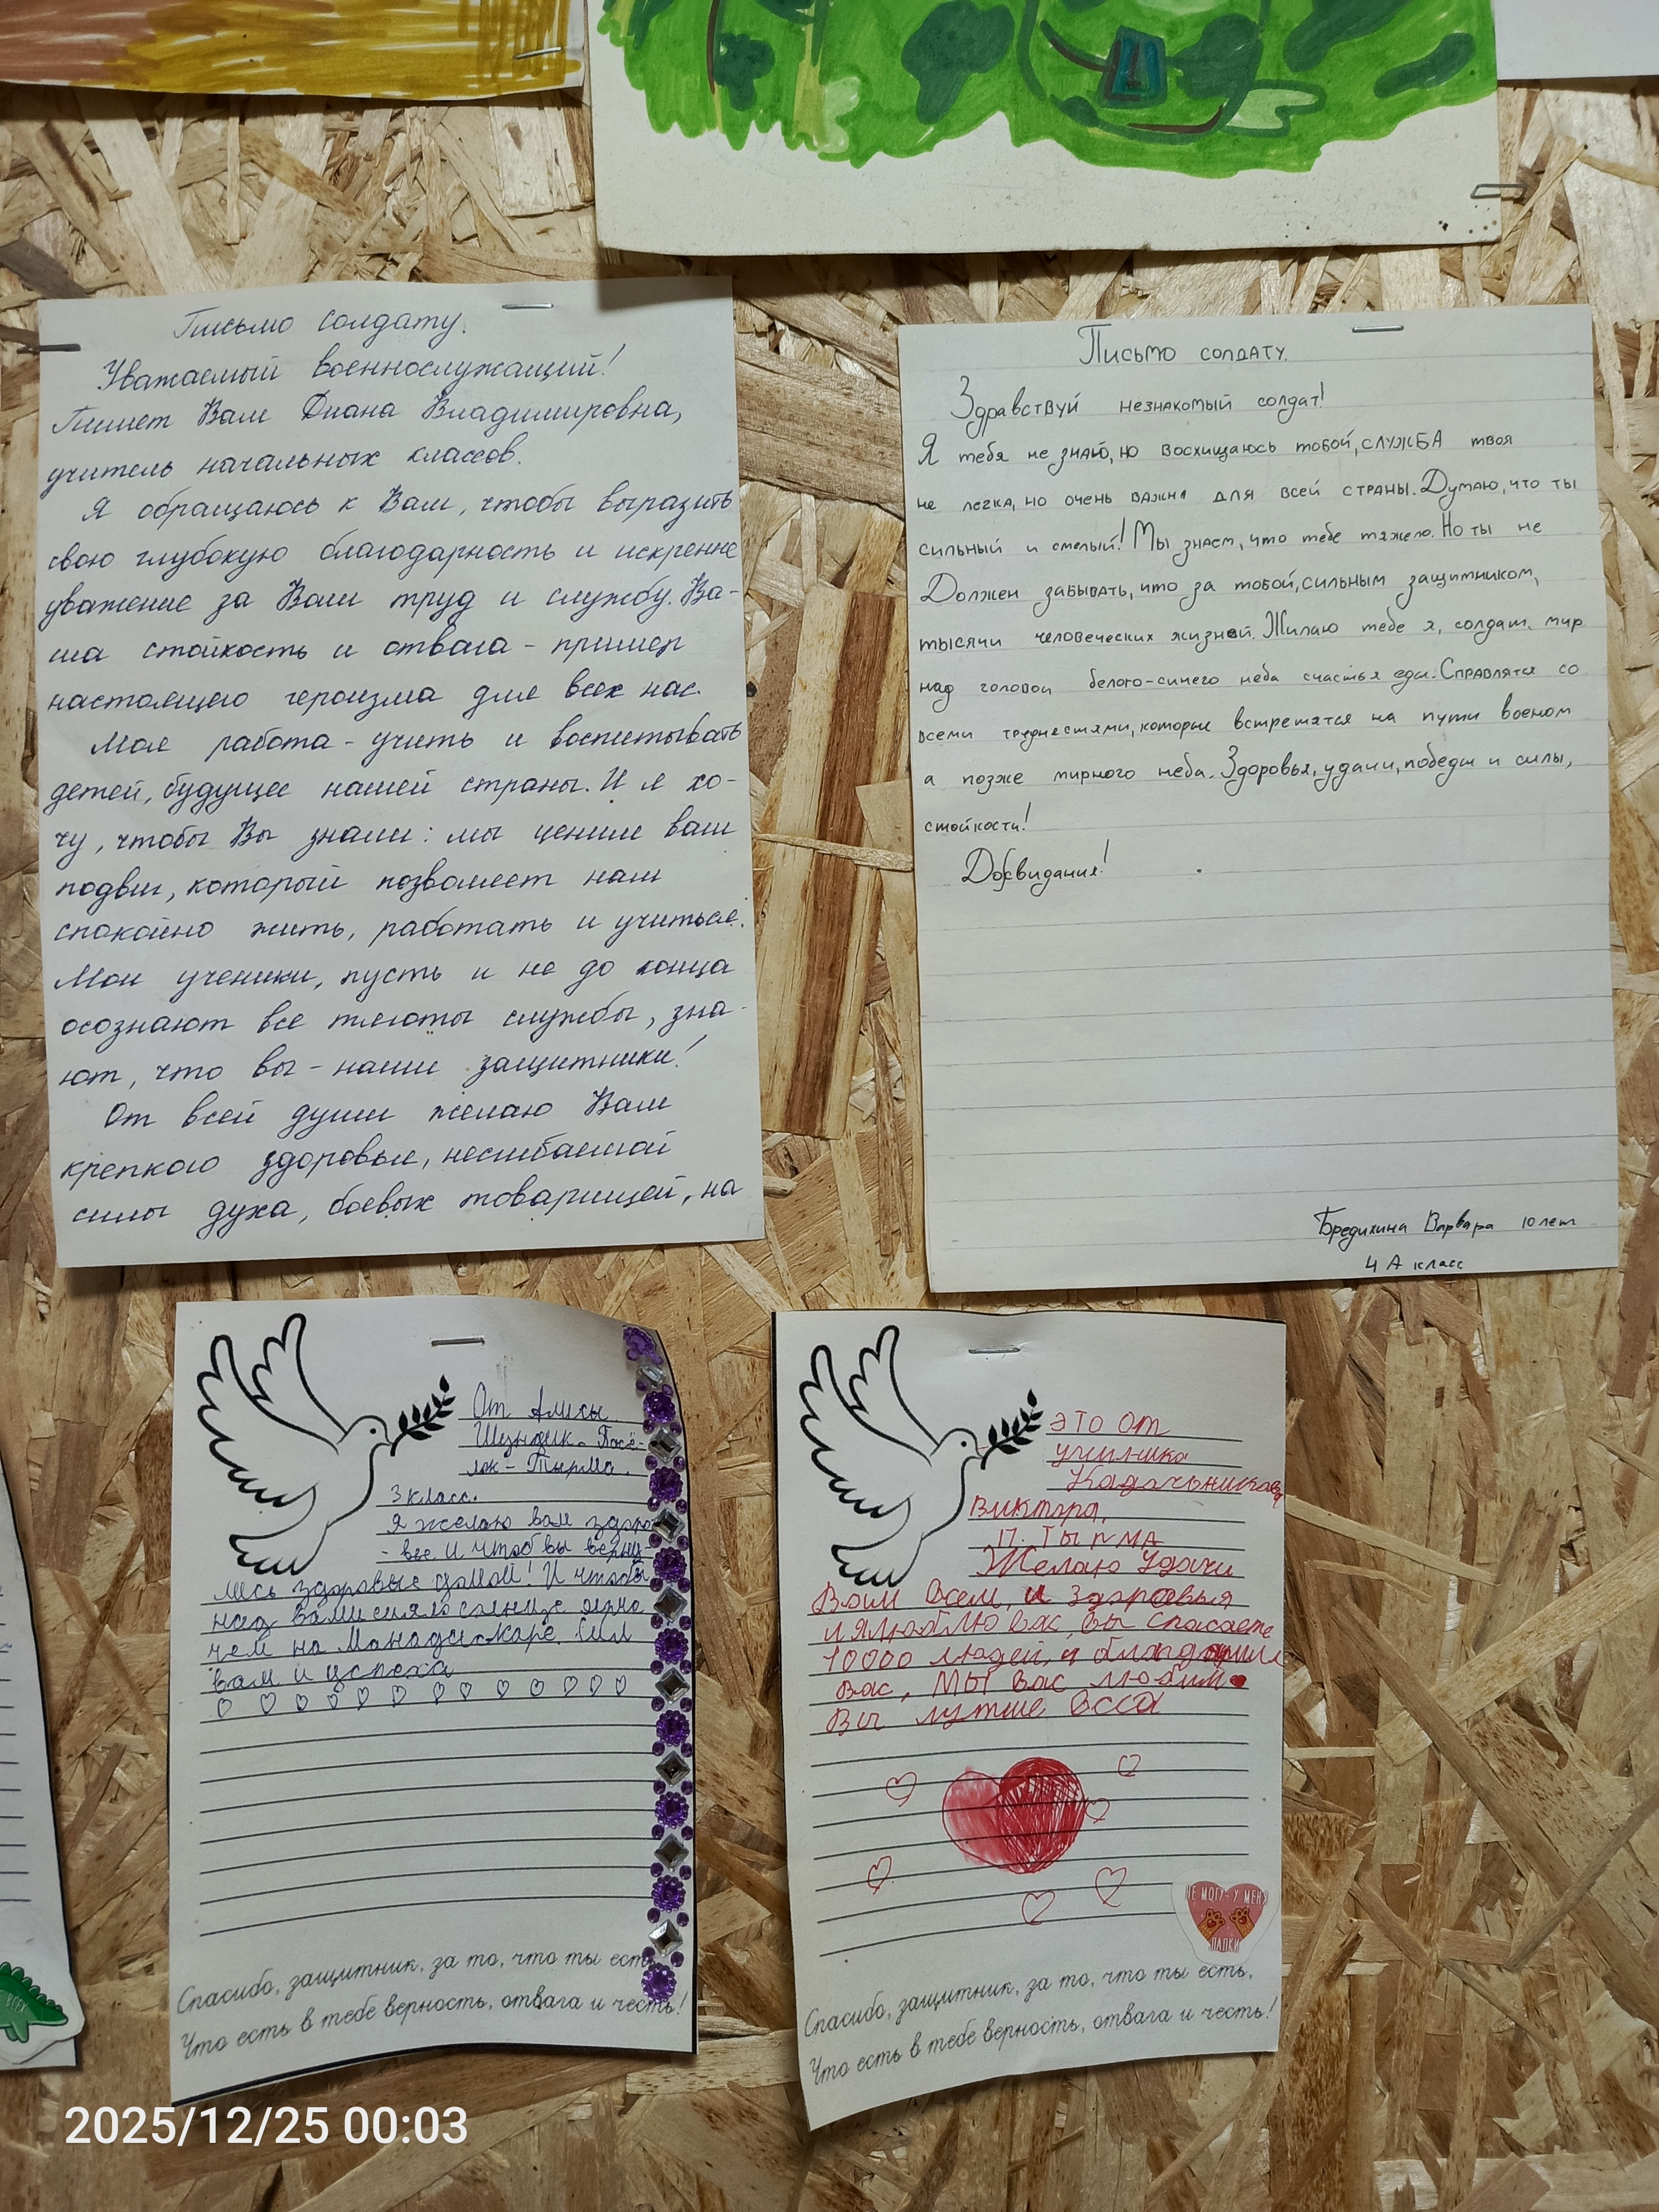 Письмо солдату.
Уважаемый военнослужащий!
Пишет Вам Диана Владимировна,
учитель начальных классов.
Я обращаюсь к Вам, чтобы выразить
свою глубокую благодарность и искренне
уважение за Ваш труд и службу. Ва-
ша стойкость и отвага - пример
настоящего героизма для всех нас.
Моя работа - учить и воспитывать
детей, будущее нашей страны. И я хо-
чу, чтобы Вы знали: мы ценим ваш
подвиг, который позволяет нам
спокойно жить, работать и учиться.
Мои ученики, пусть и не до конца
осознают все тяготы службы, зна-
ют, что вы - наши защитники!
От всей души желаю Вам
крепкого здоровья, несгибаемой
силы духа, боевых товарищей, на
Письмо солдату.
Здравствуй незнакомый солдат!
Я тебя не знаю, но восхищаюсь тобой, служба твоя
не легка, но очень важна для всей страны. Думаю, что ты
сильный и смелый! Мы знаем, что тебе тяжело. Но ты не
Должен забывать, что за тобой, сильным защитником,
тысячи человеческих жизней. Жилаю тебе я, солдат, мир
над головой белого-синего неба счастья еды. Справлятся со
всеми трудностями, которые встретятся на пути военом
а позже мирного неба. Здоровья, удачи, победы и силы,
стойкости!
Досвидания!
Бредихина Варвара 10 лет
4 А класс
От Алисы
Шундик. Посё-
лок - Тырма.
3 класс.
Я желаю вам здоро
- вье и чтоб вы верну-
лись здоровые домой! И чтобы
над вами сияло солнце
чем на Сил
вам и успеха
Спасибо, защитник, за то, что ты есть
Что есть в тебе верность, отвага и честь!
Это от
ученика
Виктора,
п. Тырма
Желаю Удачи
Вам всем, и здоровья
и я люблю вас, вы спасаете
10000 людей, я
вас, мы вас любим
Вы лутше всех
НЕ МОГУ-У МЕНЯ
ЛАПКИ
Спасибо, защитник, за то, что ты есть,
Что есть в тебе верность, отвага и честь!
ВСЕХ
2025/12/25 00:03